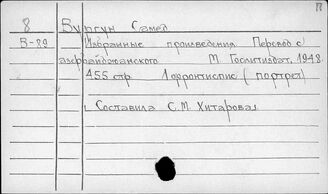 8 Вургун Самед
В-89 Избранные произведения Перевод с
азербайджанского М. Гослитиздат, 1948
455 стр 1 фронтиспис (портрет)
Составила С.М. Хитарова